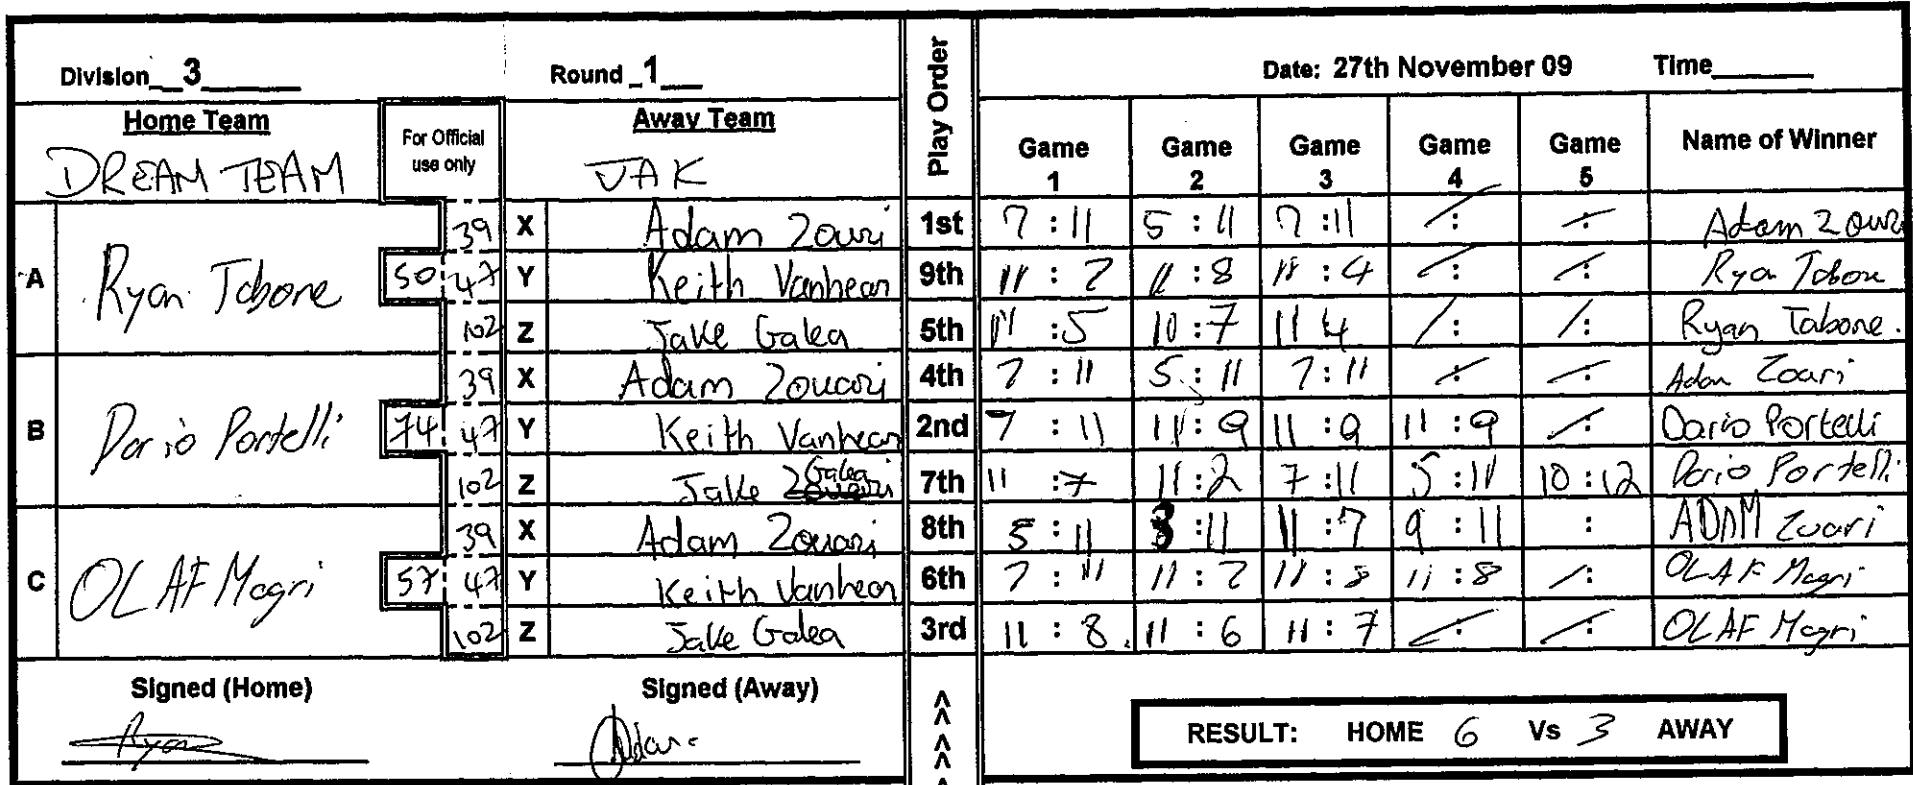 Division 3 Round 1 Date: 27th November 09 Time
Home Team For Official use only Away Team Play Order Game 1 Game 2 Game 3 Game 4 Game 5 Name of Winner
DREAM TEAM JAK
A Ryan Tabone 50
39 X Adam Zouari 1st 7 : 11 5 : 11 7 : 11 : : Adam Zouari
47 Y Keith Vanhear 9th 11 : 7 11 : 8 11 : 4 : : Ryan Tabone
102 Z Jake Galea 5th 11 : 5 10 : 7 11 4 : : Ryan Tabone.
B Dario Portelli 74
39 X Adam Zouari 4th 7 : 11 5 : 11 7 : 11 : : Adam Zoari
47 Y Keith Vanhear 2nd 7 : 11 11 : 9 11 : 9 11 : 9 : Dario Portelli
102 Z Jake Galea 7th 11 : 7 11 : 2 7 : 11 5 : 11 10 : 12 Dario Portelli
C OLAF Magri 57
39 X Adam Zouari 8th 5 : 11 3 : 11 11 : 7 9 : 11 : ADAM Zuari
47 Y Keith Vanhear 6th 7 : 11 11 : 7 11 : 8 11 : 8 : OLAF Magri
102 Z Jake Galea 3rd 11 : 8 11 : 6 11 : 7 : : OLAF Magri
Signed (Home) Signed (Away) < < < <
Ryan Adam
RESULT: HOME 6 Vs 3 AWAY